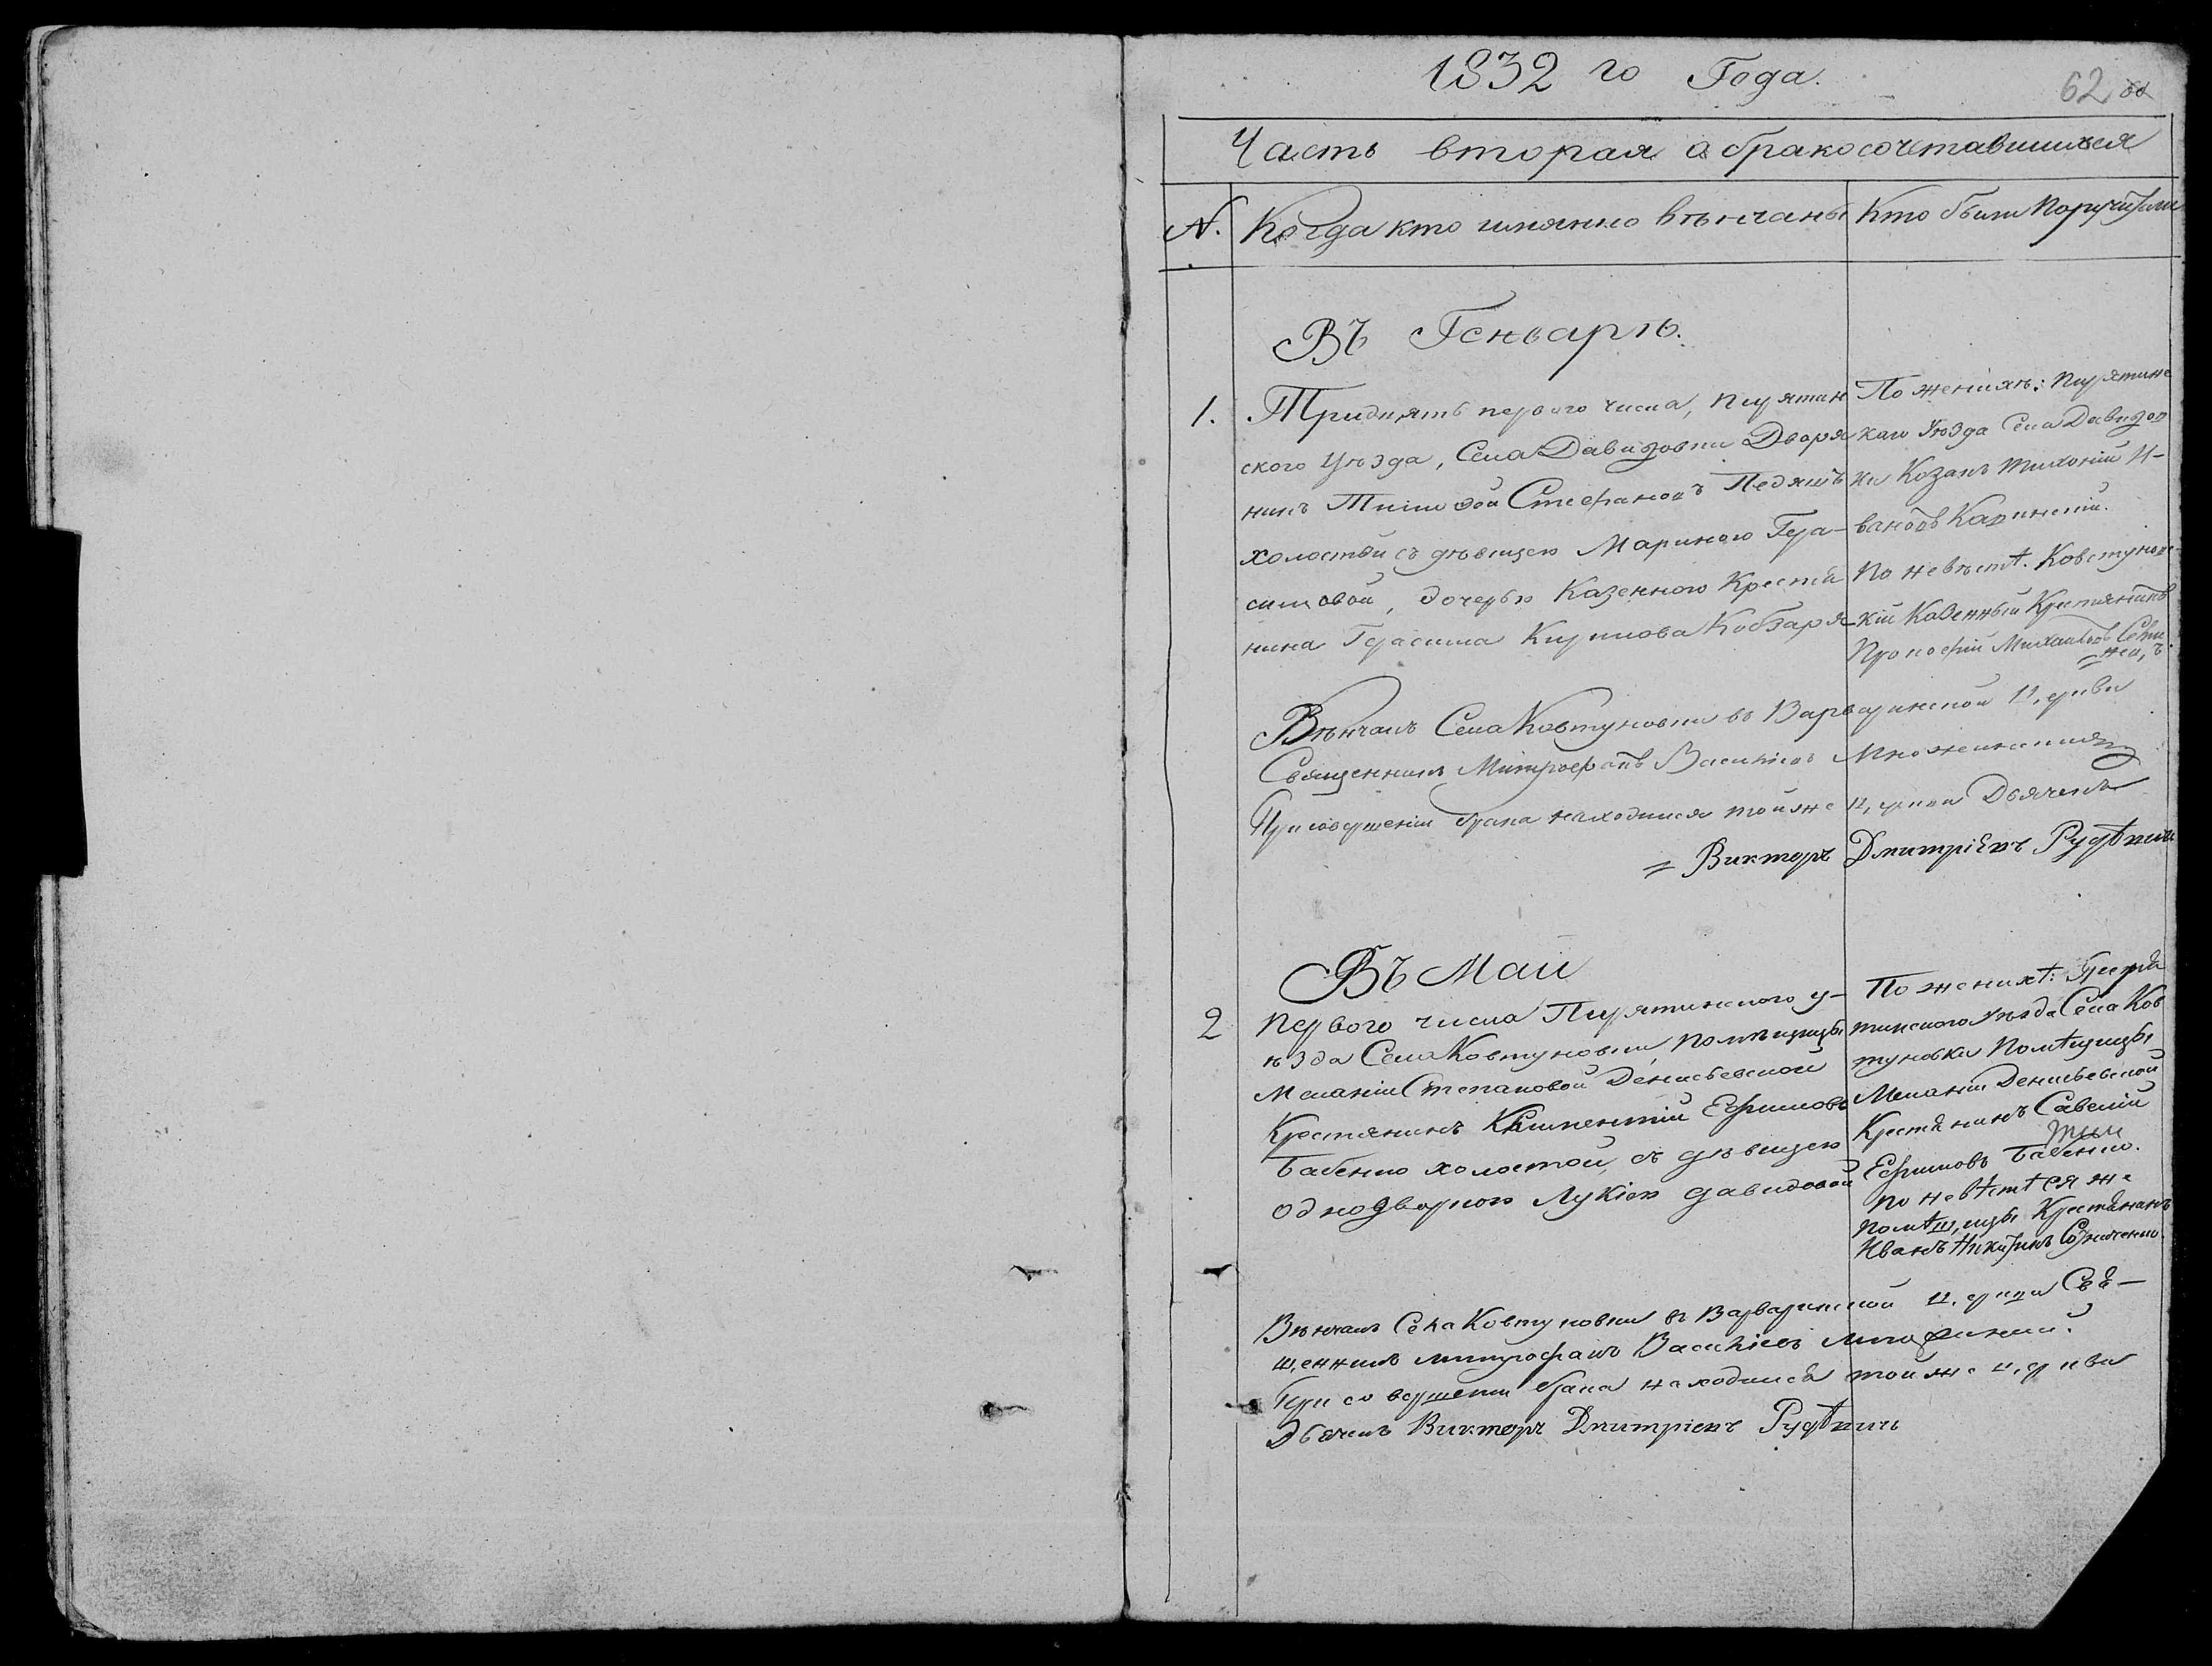 1832 го Года.
62
Часть вторая о бракосочетавшихся
N. Когда кто имянно вѣнчаны
Кто были Поручители
Въ Генварѣ.
1. Тридцять первого числа, Пирятин
ского уѣзда, Села Давидовки Дворя
нинъ Стефановъ
холостый съ дѣвицею Мариною Гера-
симовой, дочерью Казенного Крестья
нина Герасима Кирилова Кобзаря
По женихѣ: Пирятинс
каго Уѣзда Села Давидов
ки Козакъ Тихоній И-
вановъ Калинскій.
По невѣстѣ. Ковтуновс
кій Казенный Крестянинъ
Прокофій Михайловъ
Вѣнчалъ Села Ковтуновки въ Варваринской церкви
Священникъ Митрофанъ Василіевъ
При совершеніи брака находился тойже церкви Дьячекъ
= Викторъ Дмитріевъ
Въ Маи
2 Первого числа Пирятинского у-
ѣзда Села Ковтуновки, помѣщицы
Меланіи Степановой Денисьевской
Крестянинъ Климентій Ефимовъ
Бабенко холостой, съ дѣвицею
однодворкою Лукіею Давидовой
По женихѣ:
тинского Уѣзда Села Ков
туновки Помѣщицы
Меланіи Денисьевской
Крестьянинъ Савелій
Ефимовъ Бабенко.
по невѣстѣ ея же
помѣщицы Крестьянинъ
Иванъ Никитинъ
Вѣнчалъ Села Ковтуновки въ Варваринской церкви Свя-
щенникъ Митрофанъ Василіевъ
При совершеніи брака находился тойже церкви
Дьячекъ Викторъ Дмитріевъ